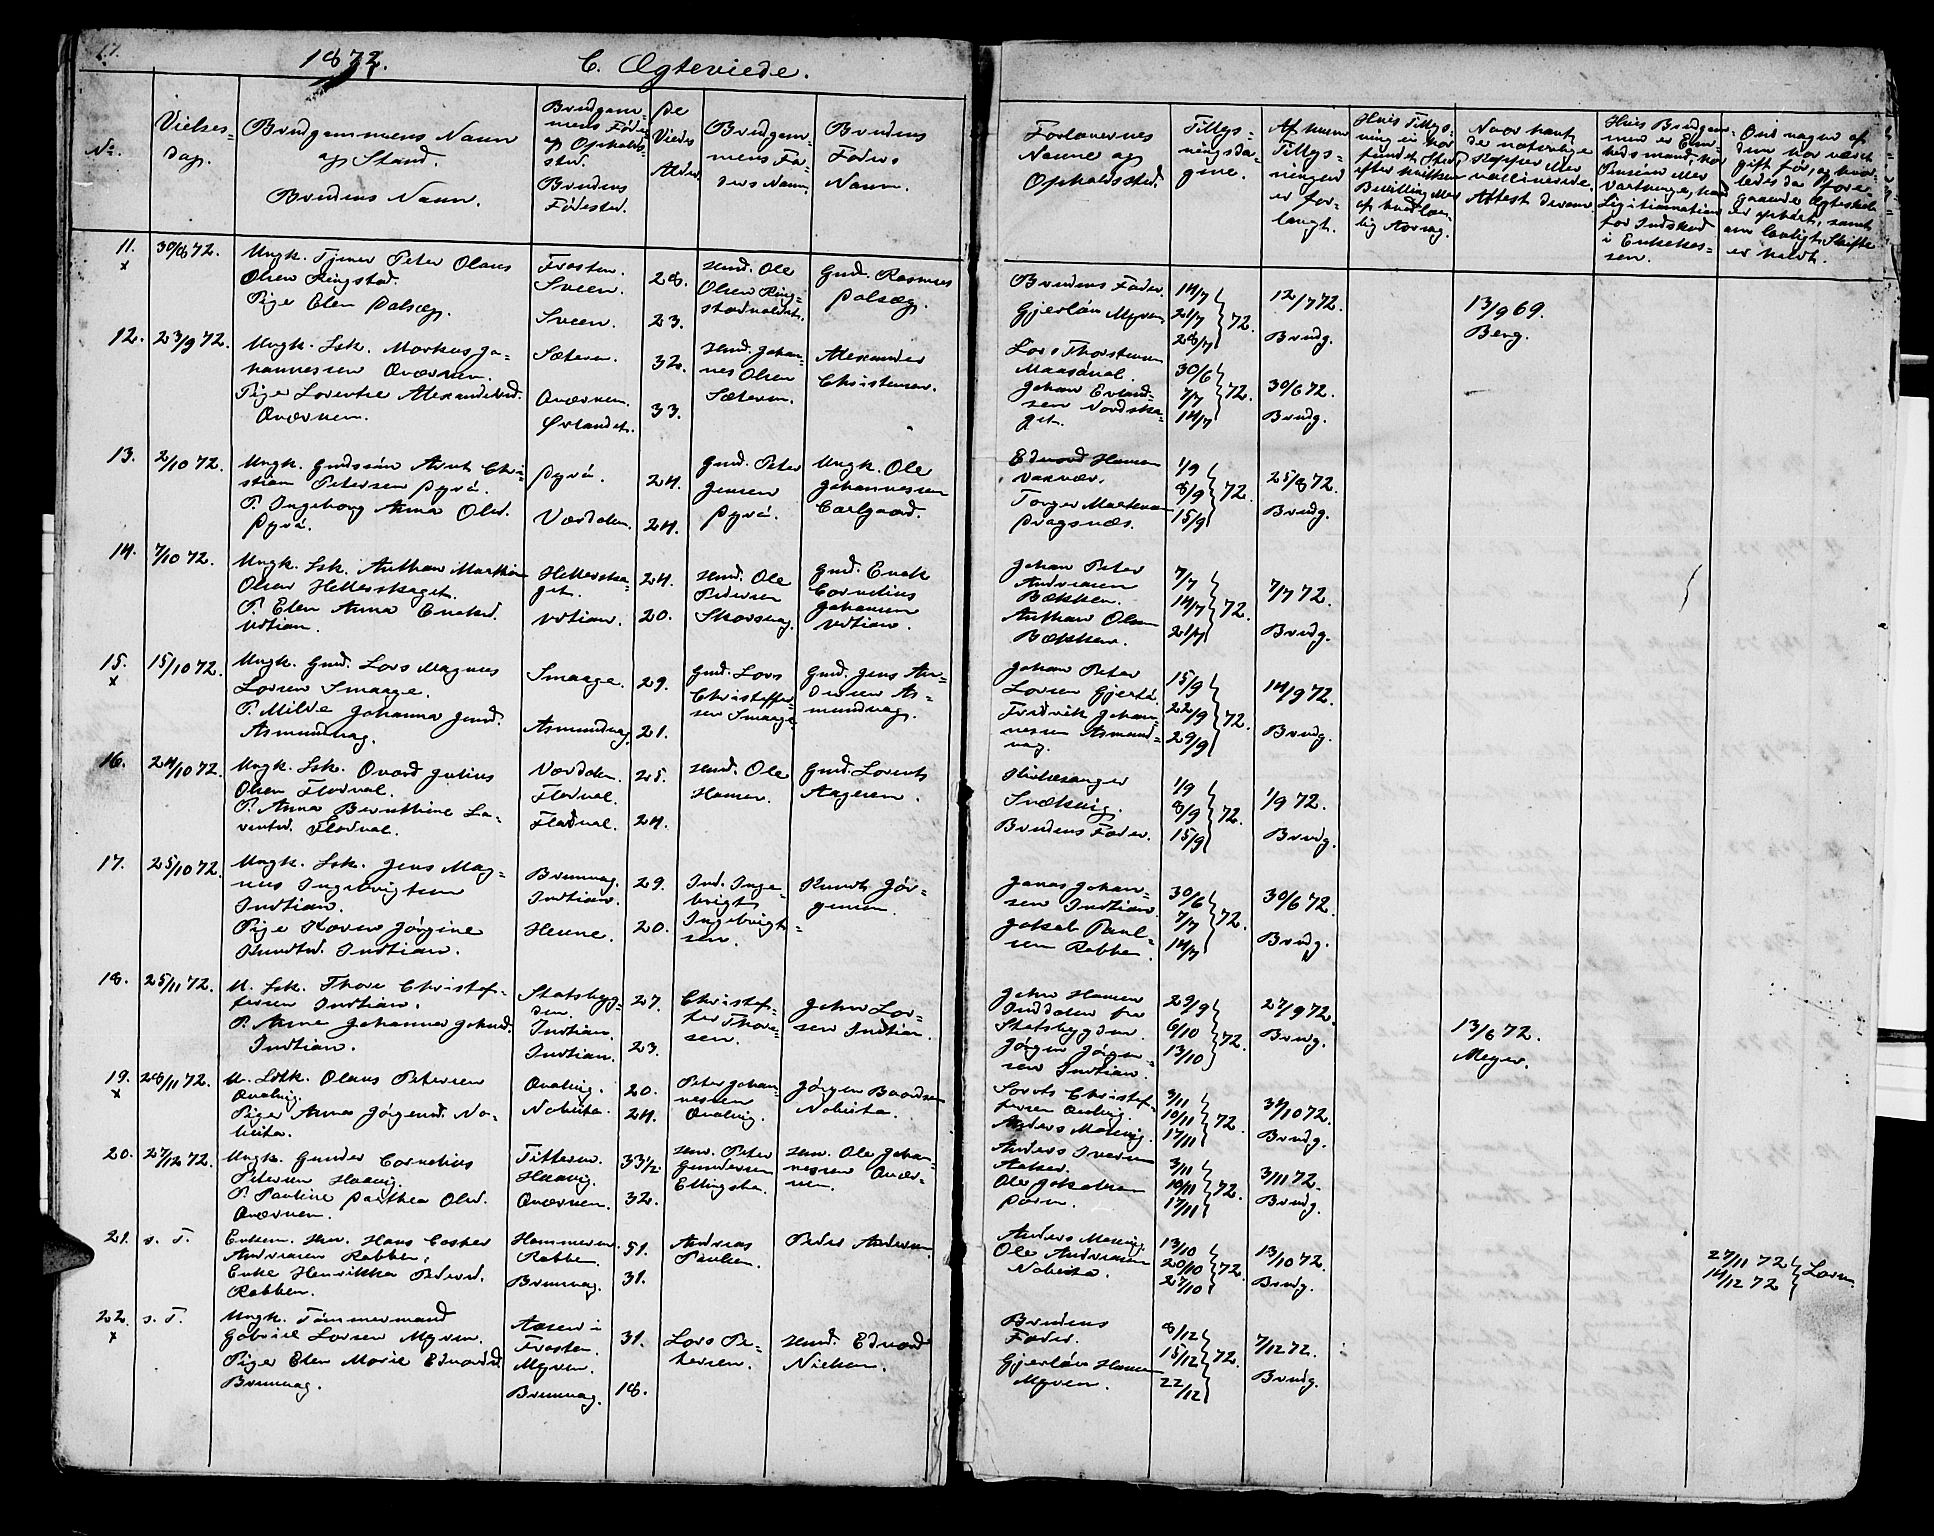 17.
1872.
C. Ægteviede.
No.
Vielses-
dag.
Brudgommens Navn
og Stand.
Brudens Navn.
Brudgom-
mens Føde-
og Opholds-
sted.
Brudens
Fødested.
De
Viedes
Alder.
Brudgom-
mens Fa-
ders Navn.
Brudens
Faders
Navn.
Forlovernes
Navne og
Opholdssted.
Tillys-
ningsda-
gene.
Af hvem
Tillys-
ningen
er for-
langt.
Naar havt
de naturlige
Kopper eller
vaccinerede.
Attest derom.
11.
x
30/8 72.
Ungk. Tjener Peter Olaus
Olsen Ringstad.
Pige Elen Dalsæg.
Frosten.
Sveen.
Sveen.
28.
23.
Husm. Ole
Olsen Ring-
stadvaldet.
Gmd. Rasmus
Dalsæg.
Brudens Fader.
Gjerløv Myren
14/7
21/7
28/7
72.
12/7 72.
Brudg.
13/9 69.
Berg.
12.
23/9 72.
Ungk. Lsk. Markus Jo-
hannessen Qværnen.
Pige Lorentse Alexandersd.
Qværnen.
Sætern.
Qværnen.
Ørlandet.
32.
33.
Husm. Johan-
nes Olsen
Sætern.
Alexander
Christensen.
Lars Thorstensen
Maasøval.
Johan Erland-
sen Nordska-
get.
30/6
7/7
14/7
72.
30/6 72.
Brudg.
13.
2/10 72.
Ungk. Gmdssøn Arnt Chri-
stian Petersen Dyrø.
P. Ingeborg Anna Olsd.
Dyrø.
Dyrø.
Værdalen.
24.
24.
Gmd. Peter
Jensen
Dyrø.
Ungk. Ole
Johannessen
Carlgaard.
Edvard Hansen
Vaxvær.
Torger Mortensen
Dragsnæs.
1/9
8/9
15/9
72.
25/8 72.
Brudg.
14.
7/10 72.
Ungk. Lsk. Anthon Martin
Olsen Hellesskaget.
P. Elen Anna Enoksd.
Ustian.
Hellesska-
get.
Ustian.
24.
20.
Husm. Ole
Pedersen
Skarsvag.
Gmd. Enok
Cornelius
Johansen
Ustian.
Johan Peter
Andreasen
Bækken.
Anthon Olsen
Bækken.
7/7
14/7
21/7
72.
7/7 72.
Brudg.
15.
x
15/10 72.
Ungk. Gmd. Lars Magnus
Larsen Smaage.
P. Milde Johanna Jensd.
Asmundvag.
Smaage.
Asmundvag.
29.
21.
Gmd. Lars
Christoffer-
sen Smaage
Gmd. Jens An-
dersen As-
mundvag.
Johan Peter
Larsen Gjertø.
Fredrik Johan-
nessen Asmund-
vag.
15/9
22/9
29/9
72.
14/9 72.
Brudg.
16.
24/10 72.
Ungk. Lsk. Ovard Julius
Olsen Flatval.
P. Anna Bernthine Lo-
rentsd. Flatval.
Værdalen.
Flatval.
Flatval.
25.
24.
Husm. Ole
Hansen.
Gmd. Lorents
Aagesen.
Kirkesanger
Snækvig.
Brudens Fader.
1/9
8/9
15/9
72.
1/9 72.
Brudg.
17.
25/10 72.
Ungk. Lsk. Jens Mag-
nus Ingebrigtsen
Inntian.
Pige Karen Jørgine
Knudtsd. Inntian.
Brunvag.
Inntian.
Hevne.
29.
20.
Ind. Inge-
brigt
Ingebrigt-
sen.
Knudt Jør-
gensen.
Jonas Johan-
sen Inntian.
Jakob Paul-
sen Rabben.
30/6
7/7
14/7
72.
30/6 72.
Brudg.
18.
25/11 72.
U. Lsk. Thore Christof-
fersen Inntian.
P. Anna Johanna Johnsd.
Inntian.
Statsbygd-
den.
Inntian.
Inntian.
27.
23.
Christof-
fer Thore-
sen.
John Lar-
sen Inntian.
John Hansen
Inddalen fra
Statsbygden.
Jørgen Jørgen-
sen Inntian.
29/9
6/10
13/10
72.
27/9 72.
Brudg.
13/6 72.
Meyer.
19.
x
28/11 72.
U. Lsk. Olaus Petersen
Qvalvig.
Pige Anna Jørgensd. No-
bista.
Qvalvig.
Nobista.
20.
24.
Peter Johan-
nessen
Qvalvig.
Jørgen Baardsen
Nobista.
3/11
10/11
17/11
72.
Anders Mausvig.
Brudg.
20.
27/12 72.
Ungk. Gunder Cornelius
Petersen Haavig.
P. Pauline Dorthea Olsd.
Qværnen.
Titteren.
Haavig.
Qværnen.
33½
32.
Husm. Peter
Gundersen
Ellingsta.
Husm. Ole Johan-
nessen Qvær-
nen.
Anders Iversen
Ole Jakobsen
3/11
10/11
17/11
72.
3/11 72.
Brudg.
21.
s. D.
Enkem. Husm. Hans Casper
Andreasen Rabben.
Enke Henrikka Pedersd.
Rabben.
Hammeren.
Rabben.
Brunvag.
51.
31.
Andreas
Paulsen.
Peder Andersen.
Ole Andreasen
Nobista.
13/10
20/10
27/10
72.
13/10 72.
Brudg.
27/11 72
14/12 72
22.
x
s. D.
Ungk. Tømmermand
Gabriel Larsen Myren.
Pige Elen Marie Edvardsd.
Brunvag.
Aasen i
Frosten.
Myren.
Brunvag.
31.
18.
Lars Pe-
tersen.
Husm. Edvard
Nielsen.
Brudens
Fader.
Gjerløv Hansen
Myren.
8/12
15/12
22/12
72.
7/12 72.
Brudg.